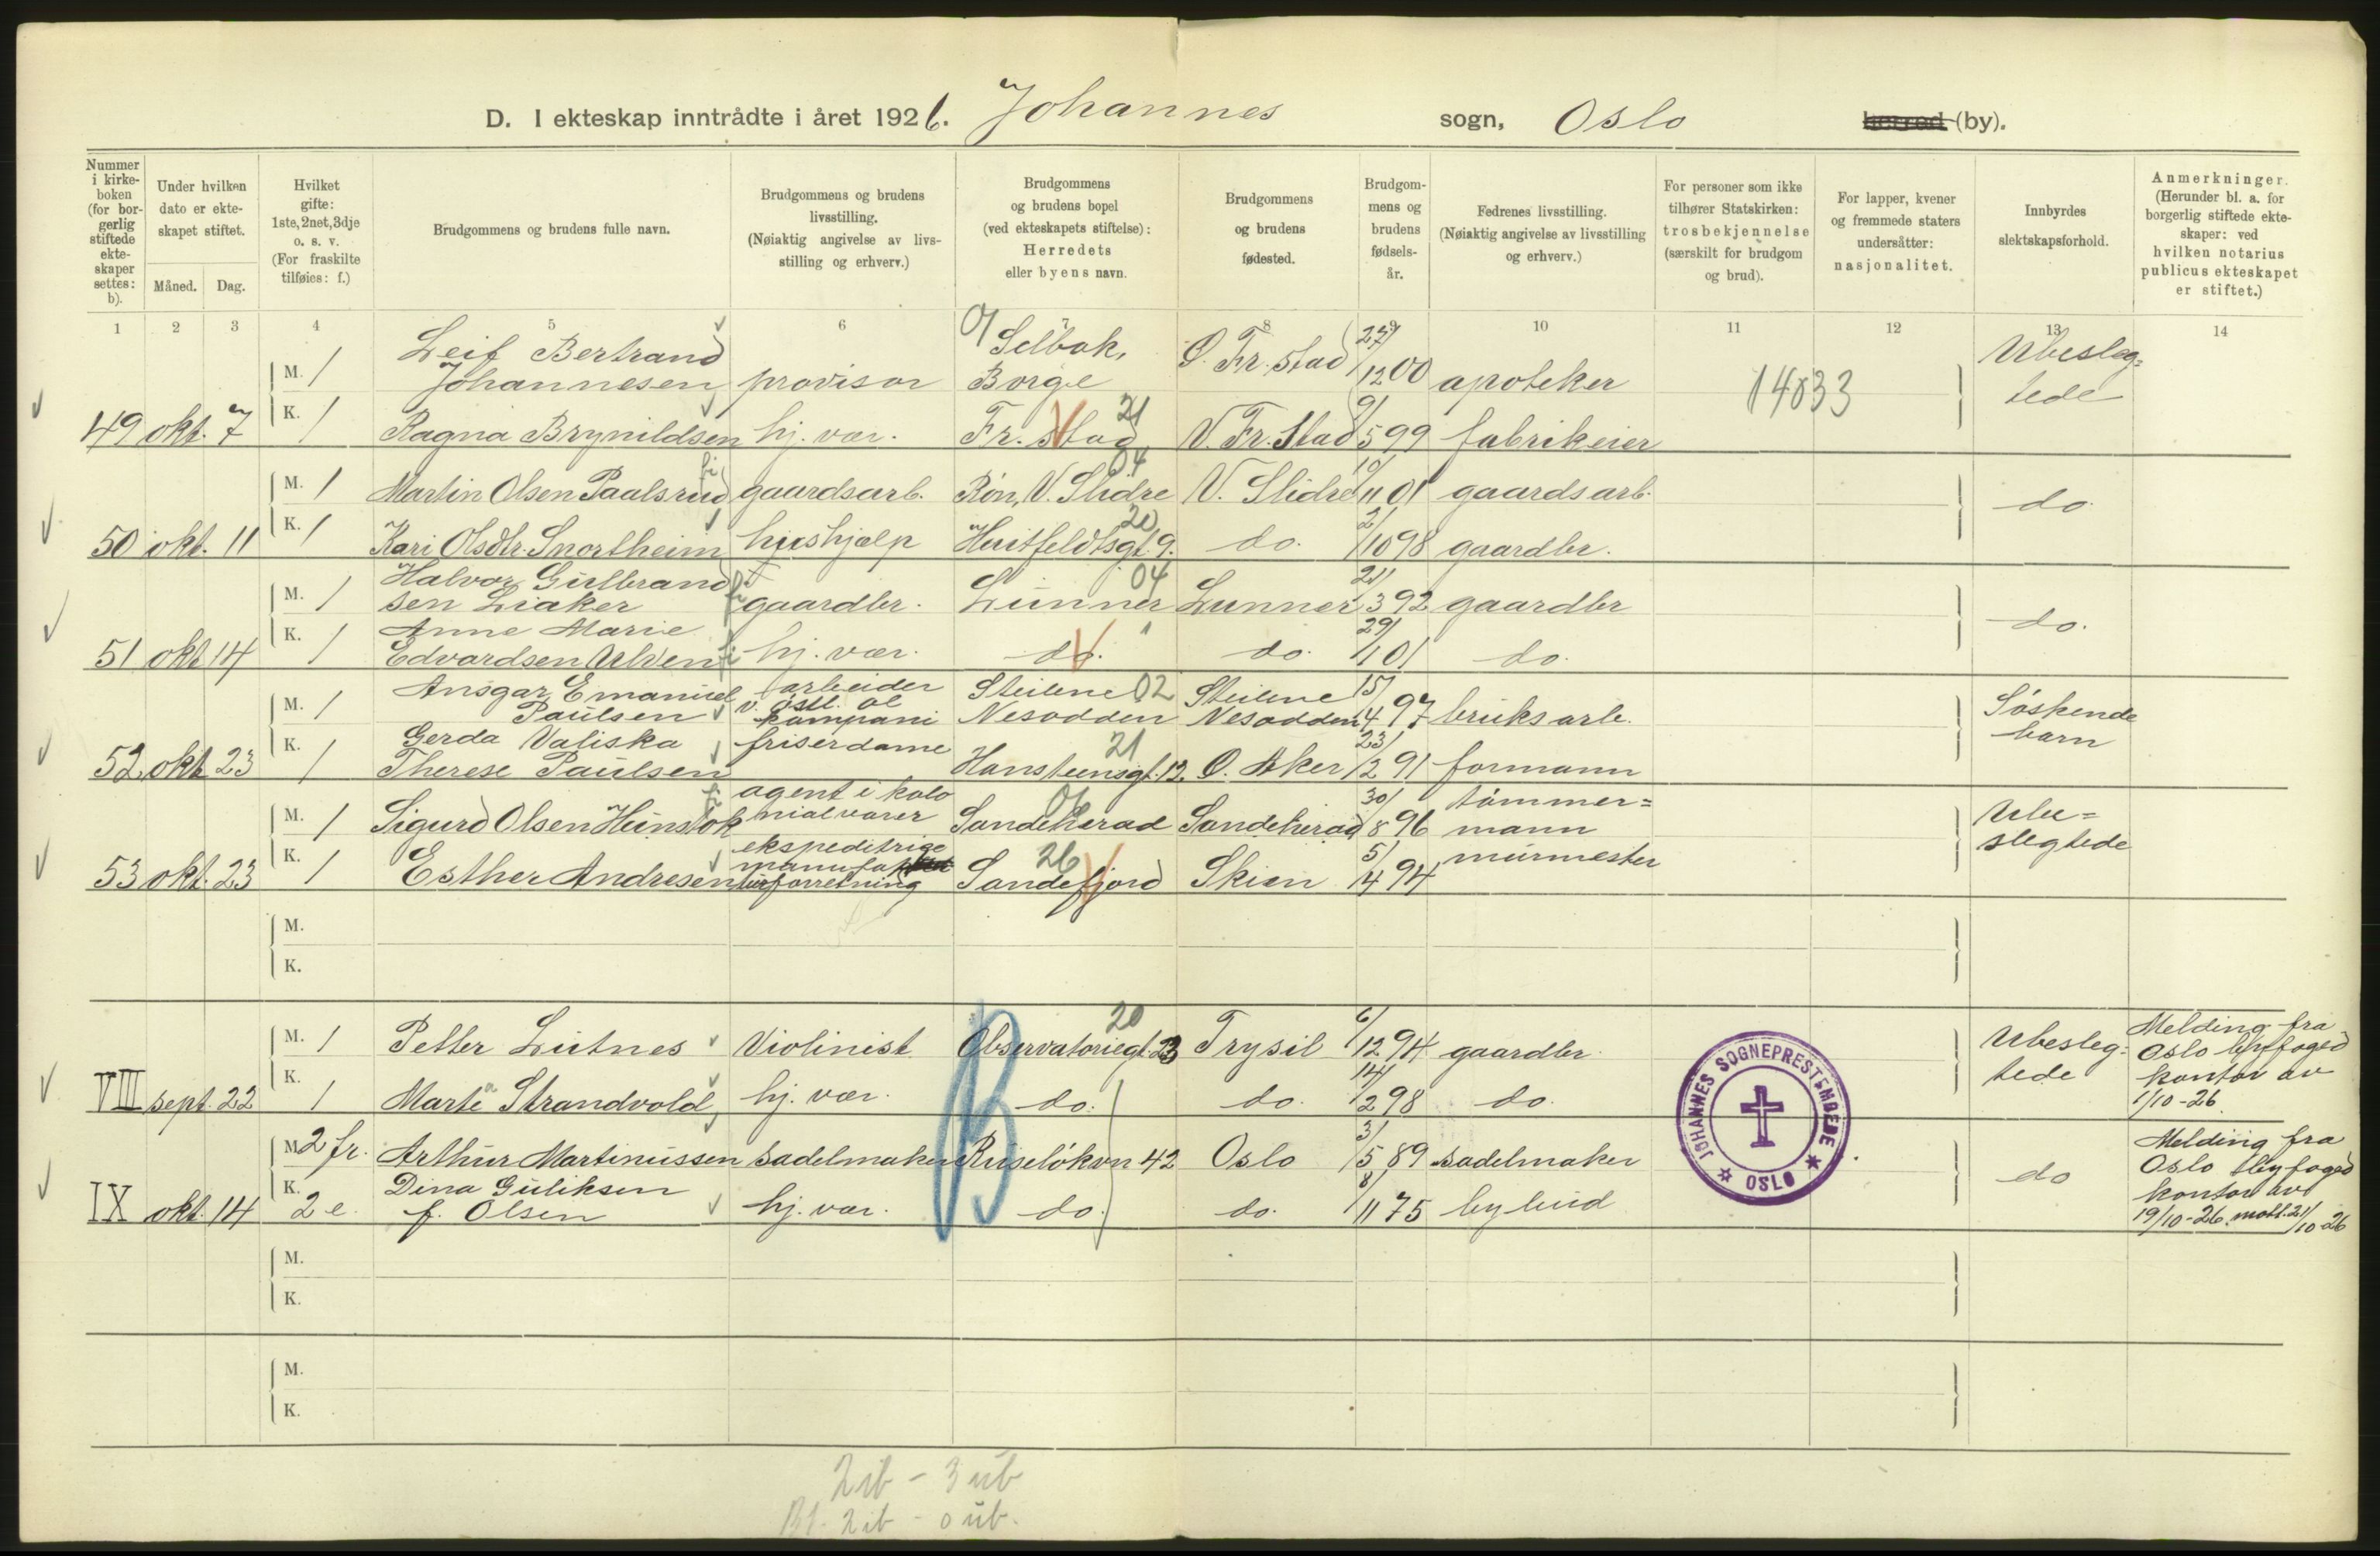 D. I ekteskap inntrådte i året 1926. Johannes sogn, Oslo herred (by).
Nummer i kirkeboken (for borgerlig stiftede ekteskaper settes: b).
Under hvilken dato er ekteskapet stiftet.
Måned. Dag.
Hvilket gifte: 1ste, 2net, 3dje o. s. v. (For fraskilte tilføies: f.)
Brudgommens og brudens fulle navn.
Brudgommens og brudens livsstilling. (Nøiaktig angivelse av livsstilling og erhverv.)
Brudgommens og brudens bopel (ved ekteskapets stiftelse): Herredets eller byens navn.
Brudgommens og brudens fødested.
Brudgommens og brudens fødselsår.
Fedrenes livsstilling. (Nøiaktig angivelse av livsstilling og erhverv.)
For personer som ikke tilhører Statskirken: trosbekjennelse (særskilt for brudgom og brud).
For lapper, kvener og fremmede staters undersåtter: nasjonalitet.
Innbyrdes slektskapsforhold.
Anmerkninger. (Herunder bl. a. for borgerlig stiftede ekteskaper: ved hvilken notarius publicus ekteskapet er stiftet.)
1 2 3 4 5 6 7 8 9 10 11 12 13 14
M. 1 Leif Bertrand Johannesen provisor 01 Selbak, Borge Ö. Fr.stad 27/12 00 apoteker 14033 Ubesleg=tede
49 okt. 7 K. 1 Ragna Brynildsen hj. vær. Fr.stad 21 V. Fr.stad 9/5 99 fabrikeier
M. 1 Martin Olsen Paalsrud gaardsarb. Røn, V. Slidre 04 V. Slidre 10/11 01 gaardsarb. do.
50 okt. 11 K. 1 Kari Olsdtr. Snortheim hushjælp Huitfeldtsgt. 9. 20 do. 2/10 98 gaardbr.
M. 1 Halvor Gulbrandsen Liaker gaardbr. Lunner 04 Lunner 21/3 92 gaardbr do.
51 okt 14 K. 1 Anne Marie Edvardsen Ulven hj. vær. do. do. 29/1 01 do.
M. 1 Ansgar Emanuel Paulsen arbeider v. östl. ol kompani Steilene Nesodden 02 Steilene Nesodden 15/4 97 bruksarb. Søskende barn
52 okt 23 K. 1 Gerda Valiska Therese Paulsen friserdame Hansteensgt. 12. 21 Ö. Aker 23/2 91 formann
M. 1 Sigurd Olsen Hunstok agent i kolonialvarer Sandeherad 01 Sandeherad 30/8 96 tømmer=mann Ube=slegtede
53 okt. 23 K. 1 Esther Andresen ekspeditrige manufakturforretning Sandefjord 26 Skien 5/4 94 murmester
M.
K.
M. 1 Petter Lutnes Violinist Observatoriegt. 23 20 Trysil 6/12 94 gaardbr. Ubesleg=tede Melding fra Oslo byfoged kontor av 1/10-26.
VIII sept. 22 K. 1 Marte Strandvold hj. vær. do. do. 14/2 98 do.
M. 2 fr. Arthur Martinussen sadelmaker Ruseløkvn 42 Oslo 3/5 89 sadelmaker do Melding fra Oslo byfoged kontor av 19/10-26. mott. 21/10-26
IX okt. 14 K. 2 e. Dina Guliksen f. Olsen hj. vær. do. do. 8/11 75 bybud
JOHANNES SOGNEPRESTEMBEDE OSLO
M.
K.
M.
K.
2 ib - 3 ub
B1. 2 ib - 0 ub.